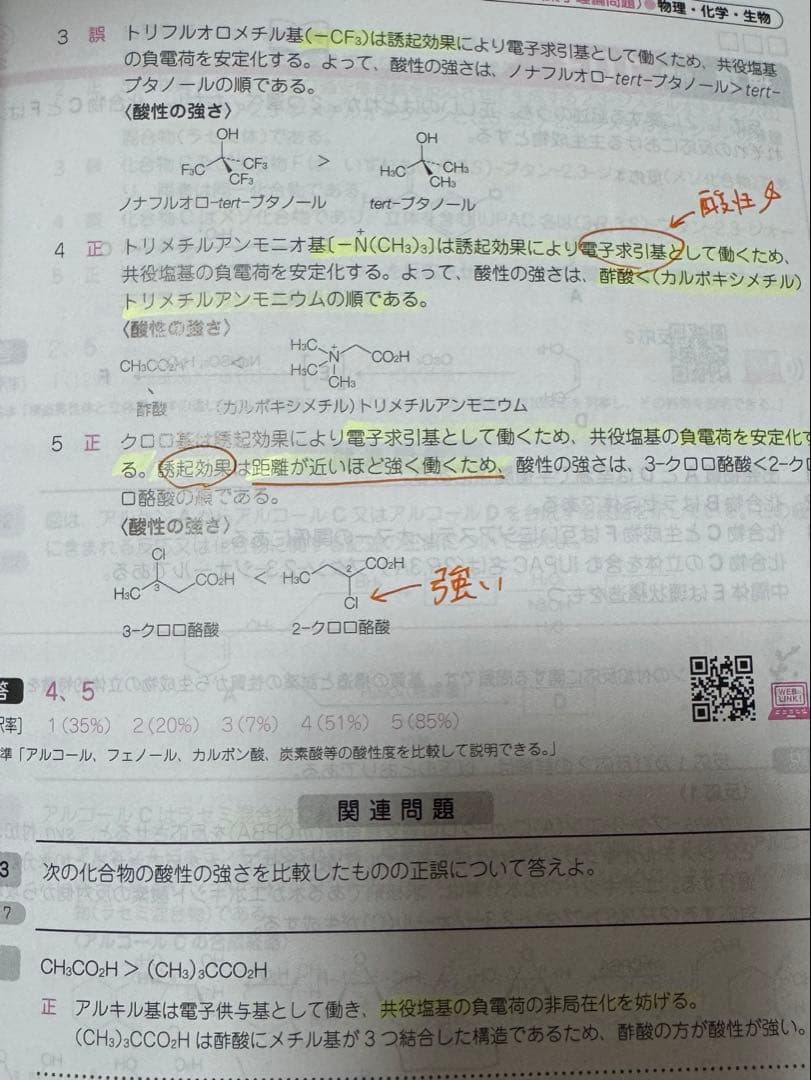 理論問題)●物理・化学・生物
3 誤 トリフルオロメチル基(−CF₃)は誘起効果により電子求引基として働くため、共役塩基
の負電荷を安定化する。よって、酸性の強さは、ノナフルオロ−tert−ブタノール>tert−
ブタノールの順である。
〈酸性の強さ〉
OH
F₃C CF₃
CF₃
>
OH
H₃C CH₃
CH₃
ノナフルオロ−tert−ブタノール tert−ブタノール
←酸性
4 正 トリメチルアンモニオ基〔−N⁺(CH₃)₃〕は誘起効果により電子求引基として働くため、
共役塩基の負電荷を安定化する。よって、酸性の強さは、酢酸<(カルボキシメチル)
トリメチルアンモニウムの順である。
〈酸性の強さ〉
CH₃CO₂H <
H₃C
N⁺ CO₂H
H₃C
CH₃
酢酸 (カルボキシメチル)トリメチルアンモニウム
5 正 クロロ基は誘起効果により電子求引基として働くため、共役塩基の負電荷を安定化す
る。誘起効果は距離が近いほど強く働くため、酸性の強さは、3−クロロ酪酸<2−ク
ロ酪酸の順である。
〈酸性の強さ〉
Cl
H₃C 3 CO₂H
<
H₃C 2 CO₂H
Cl
←強い
3−クロロ酪酸 2−クロロ酪酸
答 4、5
択率] 1(35%) 2(20%) 3(7%) 4(51%) 5(85%)
WEB LINK!
準「アルコール、フェノール、カルボン酸、炭素酸等の酸性度を比較して説明できる。」
関連問題
3 次の化合物の酸性の強さを比較したものの正誤について答えよ。
7
CH₃CO₂H>(CH₃)₃CCO₂H
正 アルキル基は電子供与基として働き、共役塩基の負電荷の非局在化を妨げる。
(CH₃)₃CCO₂Hは酢酸にメチル基が3つ結合した構造であるため、酢酸の方が酸性が強い。